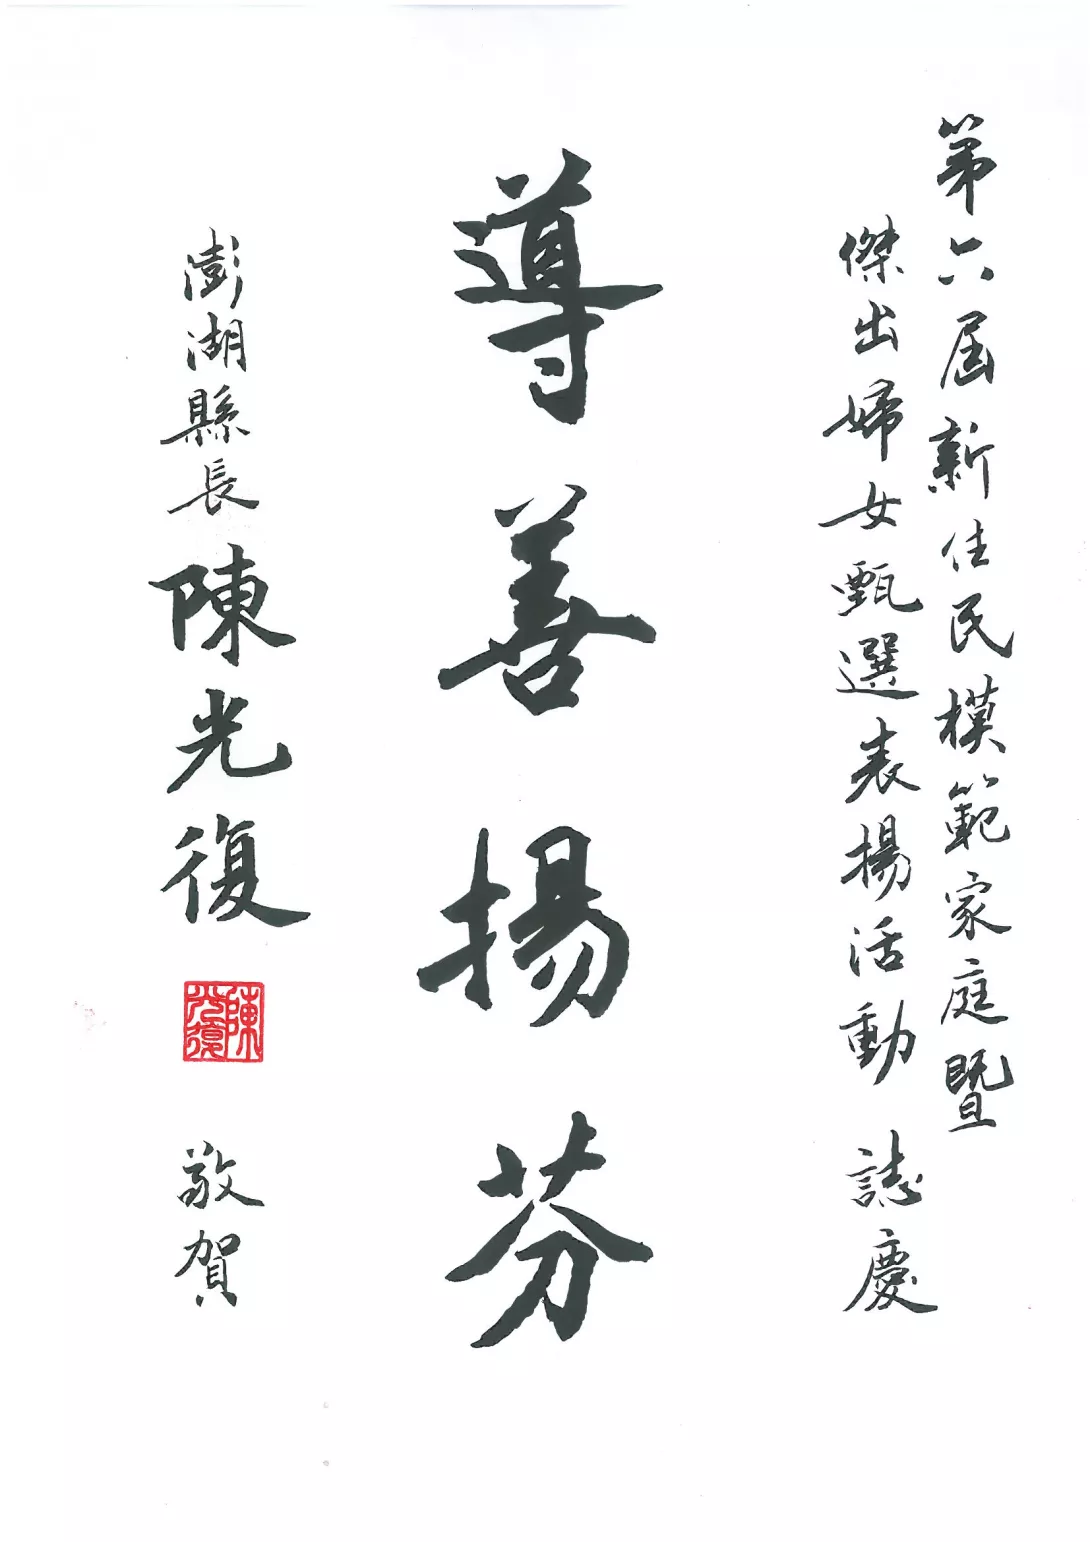 第六屆新住民模範家庭暨
傑出婦女甄選表揚活動 誌慶
導善揚芬
澎湖縣長 陳光復 敬賀
陳光復